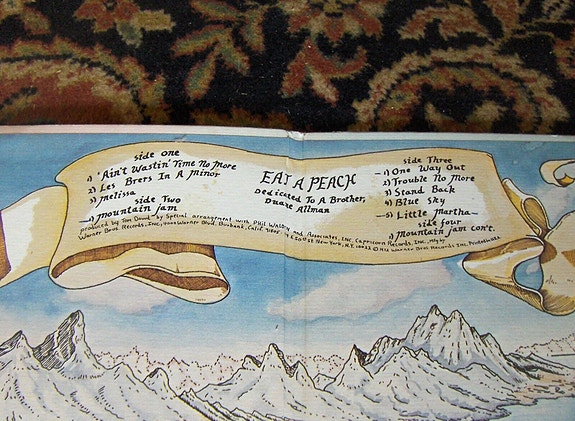 side one
1) 'Ain't Wastin' Time No More
2) Les Brers In A Minor
3) Melissa
side Two
1) Mountain Jam
EAT A PEACH
Dedicated To A Brother,
Duane Allman
side Three
1) One Way Out
2) Trouble No More
3) Stand Back
4) Blue Sky
5) Little Martha
side four
1) Mountain Jam con't.
produced by Tom Dowd by special arrangement with Phil Walden and Associates, INC. Capricorn Records, Inc.
Warner Bros. Records, Inc., Warner Blvd. Burbank, Calif. New York, N.Y. 10023 ©1972 Warner Bros Records Inc.